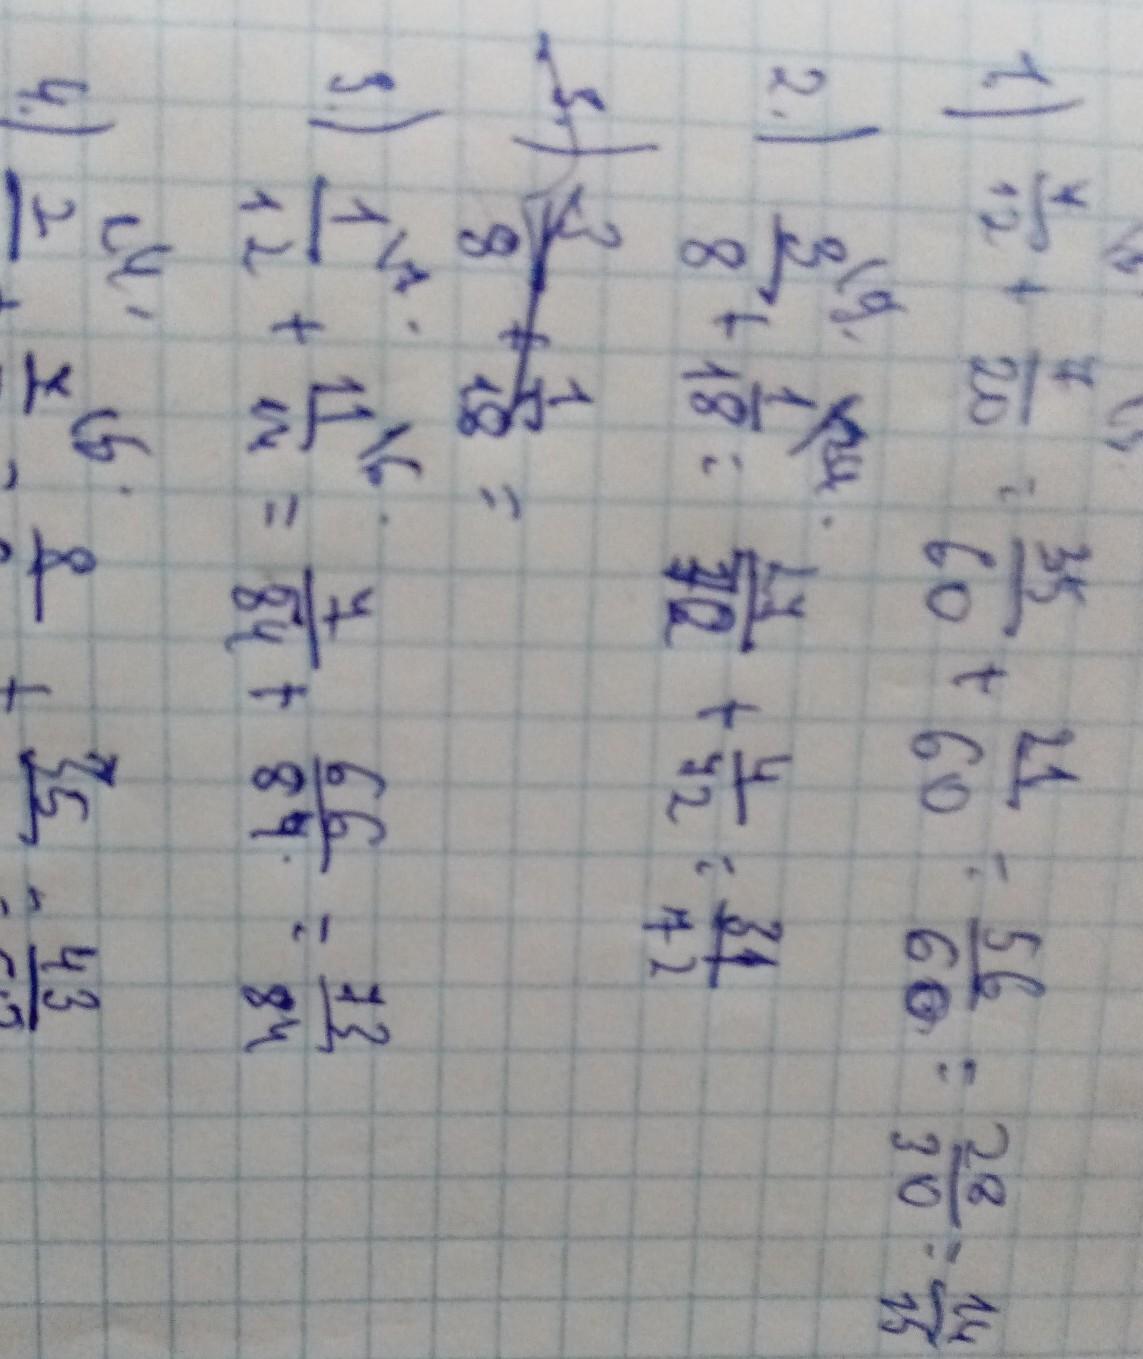 1.) 7/12 + 7/20 = 35/60 + 21/60 = 56/60 = 28/30 = 14/15
2.) 3/8 + 1/18 = 27/72 + 4/72 = 31/72
3/8 + 1/18 =
3.) 1/12 + 11/14 = 7/84 + 66/84 = 73/84
4.) 2 + = 8 + 35 = 43